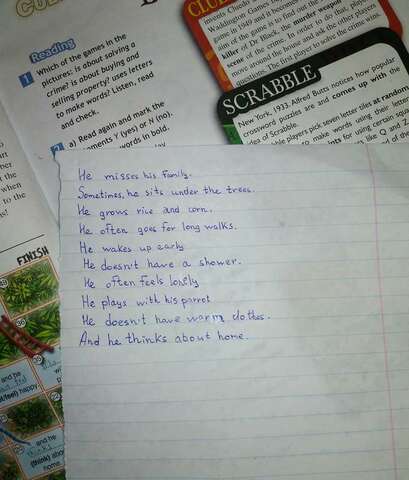 Reading
1 Which of the games in the
pictures: is about solving a
crime? is about buying and
selling property? uses letters
to make words? Listen, read
and check.
a) Read again and mark the
Y (yes) or N (no).
words in bold.
CLUE
invents Cluedo
Waddington Games
time in 1949 and becomes
aim of the game is to find out the
of Dr Black, the murder weapon
scene of the crime. In order to do so, players
move around the house and ask the other players
questions. The first player to solve the crime wins.
SCRABBLE
New York, 1933. Alfred Butts notices how popular
crossword puzzles are and comes up with the
idea of Scrabble.
players pick seven letter tiles at random
to make words using their letters
points for using certain
like Q and Z
He misses his family.
Sometimes, he sits under the trees.
He grows rice and corn.
He often goes for long walks.
He wakes up early
He doesn't have a shower.
He often feels lonely
He plays with his parrot
He doesn't have warm clothes.
And he thinks about home.
FINISH
and he
(feel) happy
and he
thinks
(think) about
home